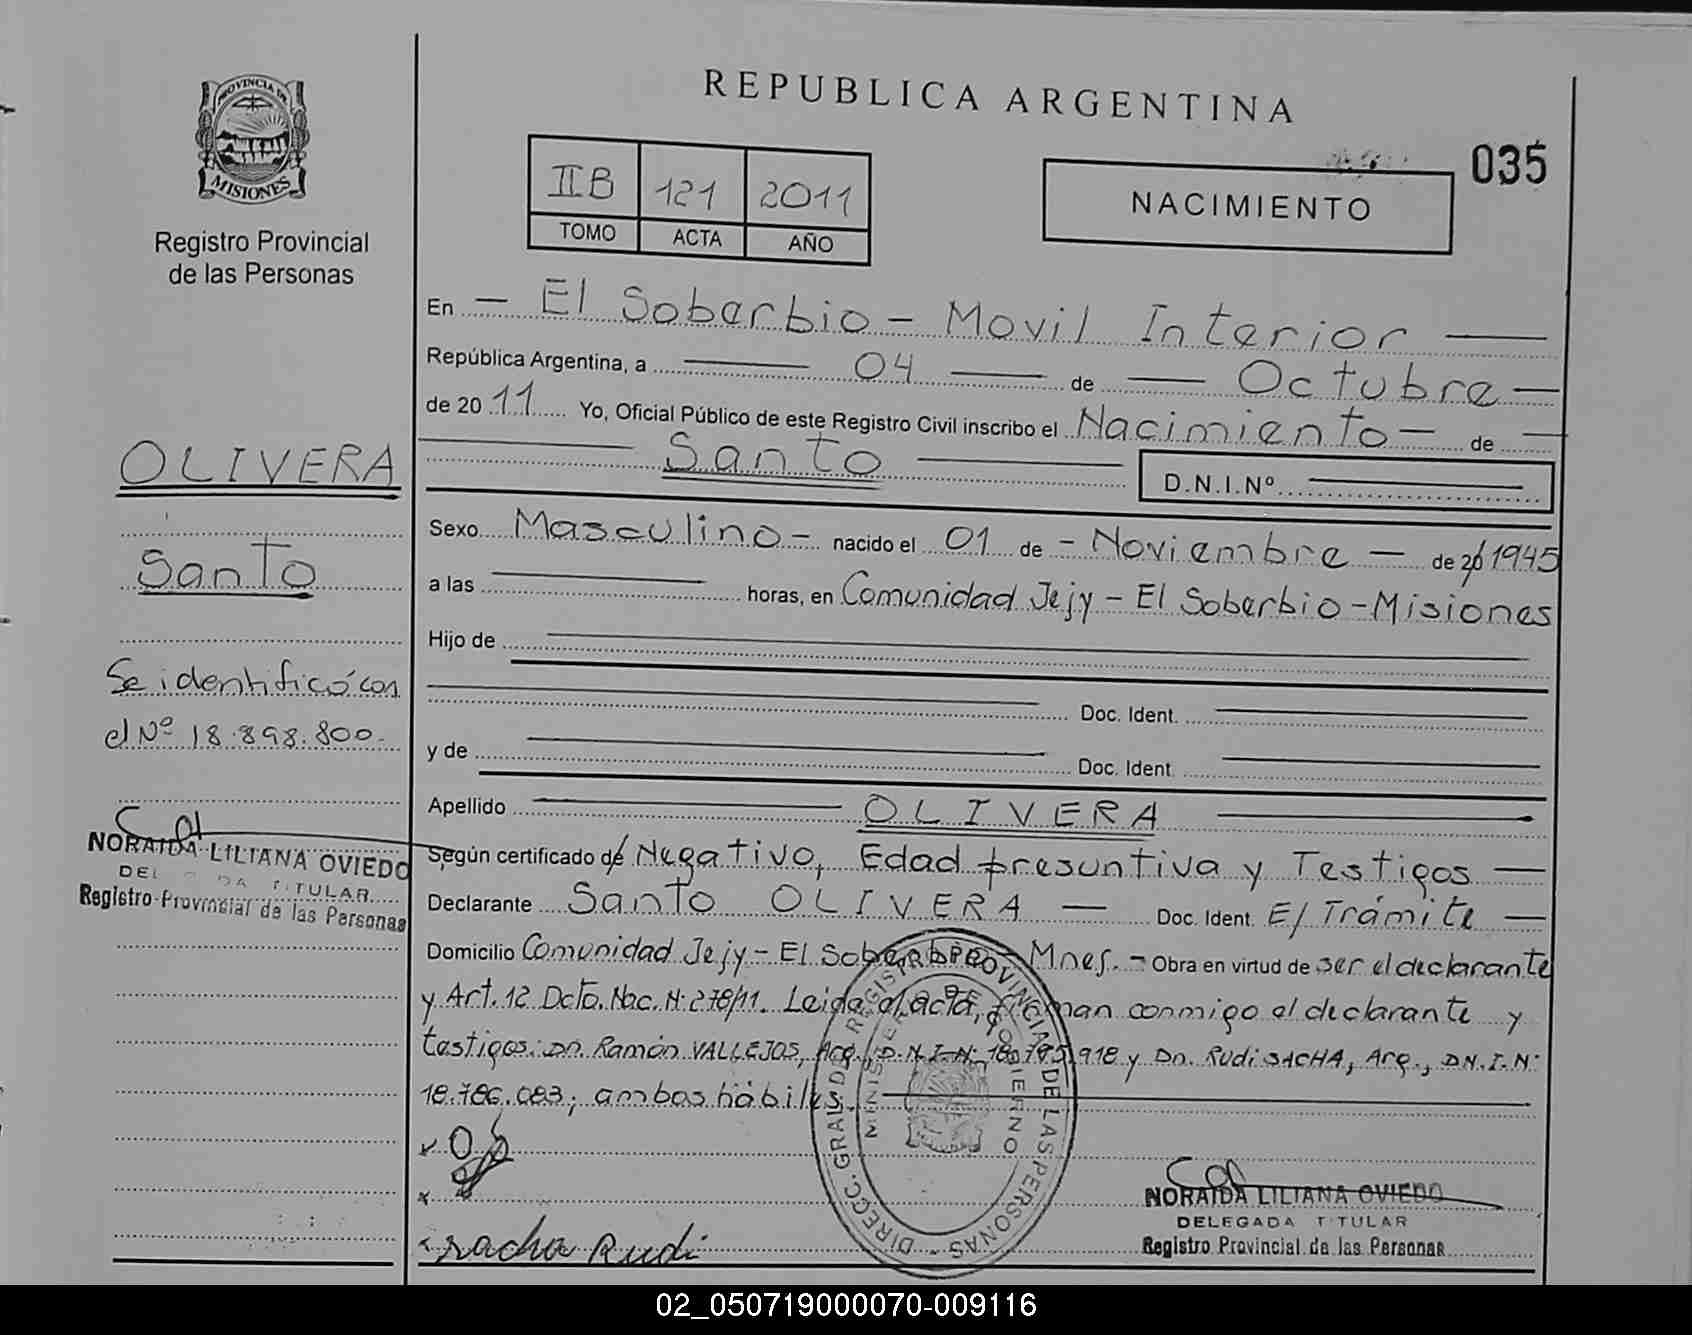 PROVINCIA DE
MISIONES
Registro Provincial
de las Personas
OLIVERA
Santo
Se identificó con
el Nº 18.898.800.-
NORAIDA LILIANA OVIEDO
TITULAR
Registro Provincial de las Personas
REPUBLICA ARGENTINA
IIB 121 2011
TOMO ACTA AÑO
NACIMIENTO
035
En — El Soberbio – Movil Interior —
República Argentina, a — 04 — de — Octubre —
de 20 11 Yo, Oficial Público de este Registro Civil inscribo el Nacimiento — de —
— Santo — D.N.I.Nº —
Sexo Masculino – nacido el 01 de – Noviembre — de 20 1945
a las — horas, en Comunidad Jejy – El Soberbio – Misiones
Hijo de —
— Doc. Ident. —
y de — Doc. Ident. —
Apellido — OLIVERA —
Según certificado de Negativo, Edad presuntiva y Testigos —
Declarante Santo OLIVERA — Doc. Ident. E/Trámite —
Domicilio Comunidad Jejy – El Soberbio Mnes. – Obra en virtud de ser el declarante
y Art. 12 Dcto. Nac. N: 278/11. Leida el acta, firman conmigo el declarante y
testigos: Dn. Ramón VALLEJOS, Arg., D.N.I.N: 18.795.918 y Dn. Rudi SACHA, Arg., D.N.I.N:
18.786.083; ambos hábiles. —
x
x
x Sacha Rudi
DIRECC. GRAL. DE REGISTRO PROVINCIAL DE LAS PERSONAS -
MINISTERIO DE GOBIERNO
NORAIDA LILIANA OVIEDO
DELEGADA TITULAR
Registro Provincial de las Personas
02_050719000070-009116